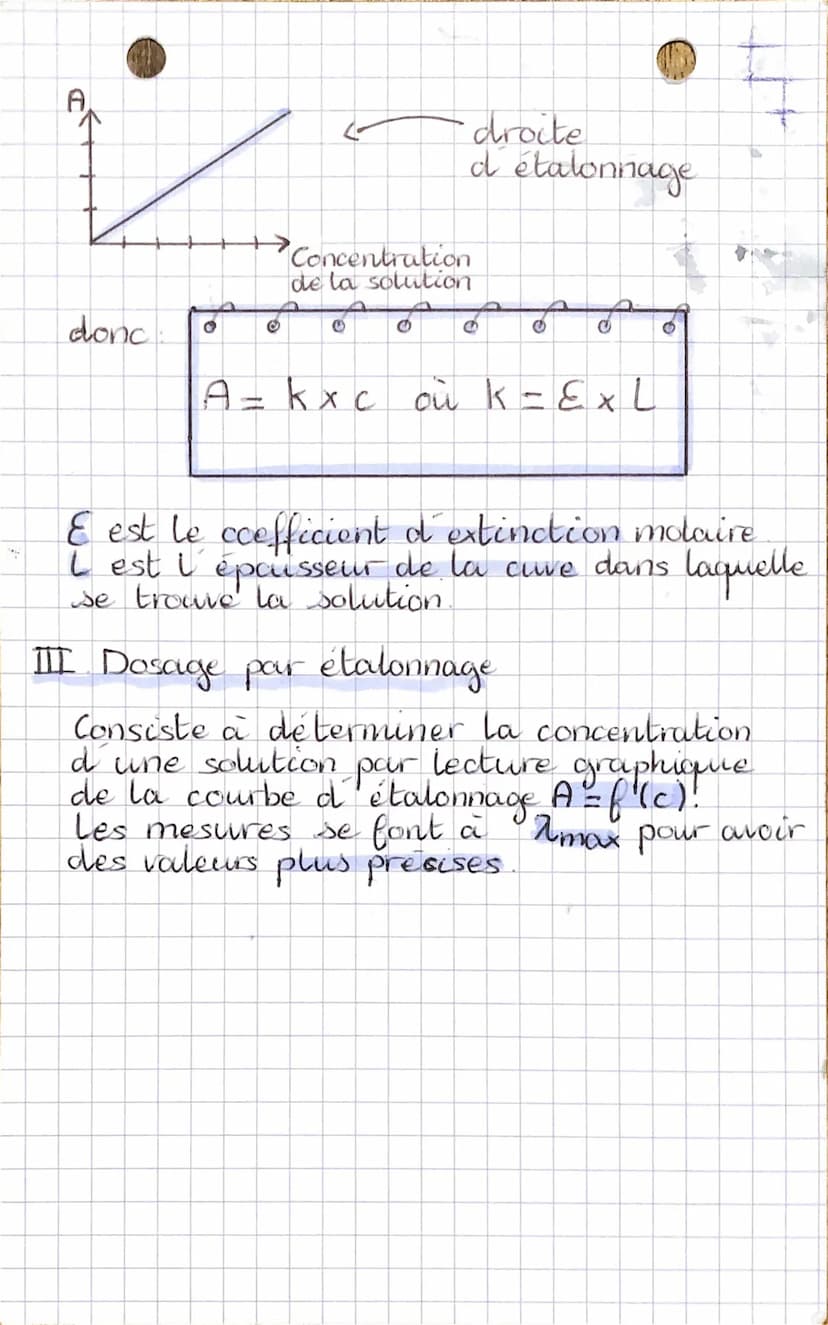 A
droite
d'étalonnage
Concentration
de la solution
donc :
A = k x c où k = ε x L
ε est le coefficient d'extinction molaire.
L est l'épaisseur de la cuve dans laquelle
se trouve la solution.
III Dosage par étalonnage
Consiste à déterminer la concentration
d'une solution par lecture graphique
de la courbe d'étalonnage A = f(c).
Les mesures se font à λmax pour avoir
des valeurs plus précises.